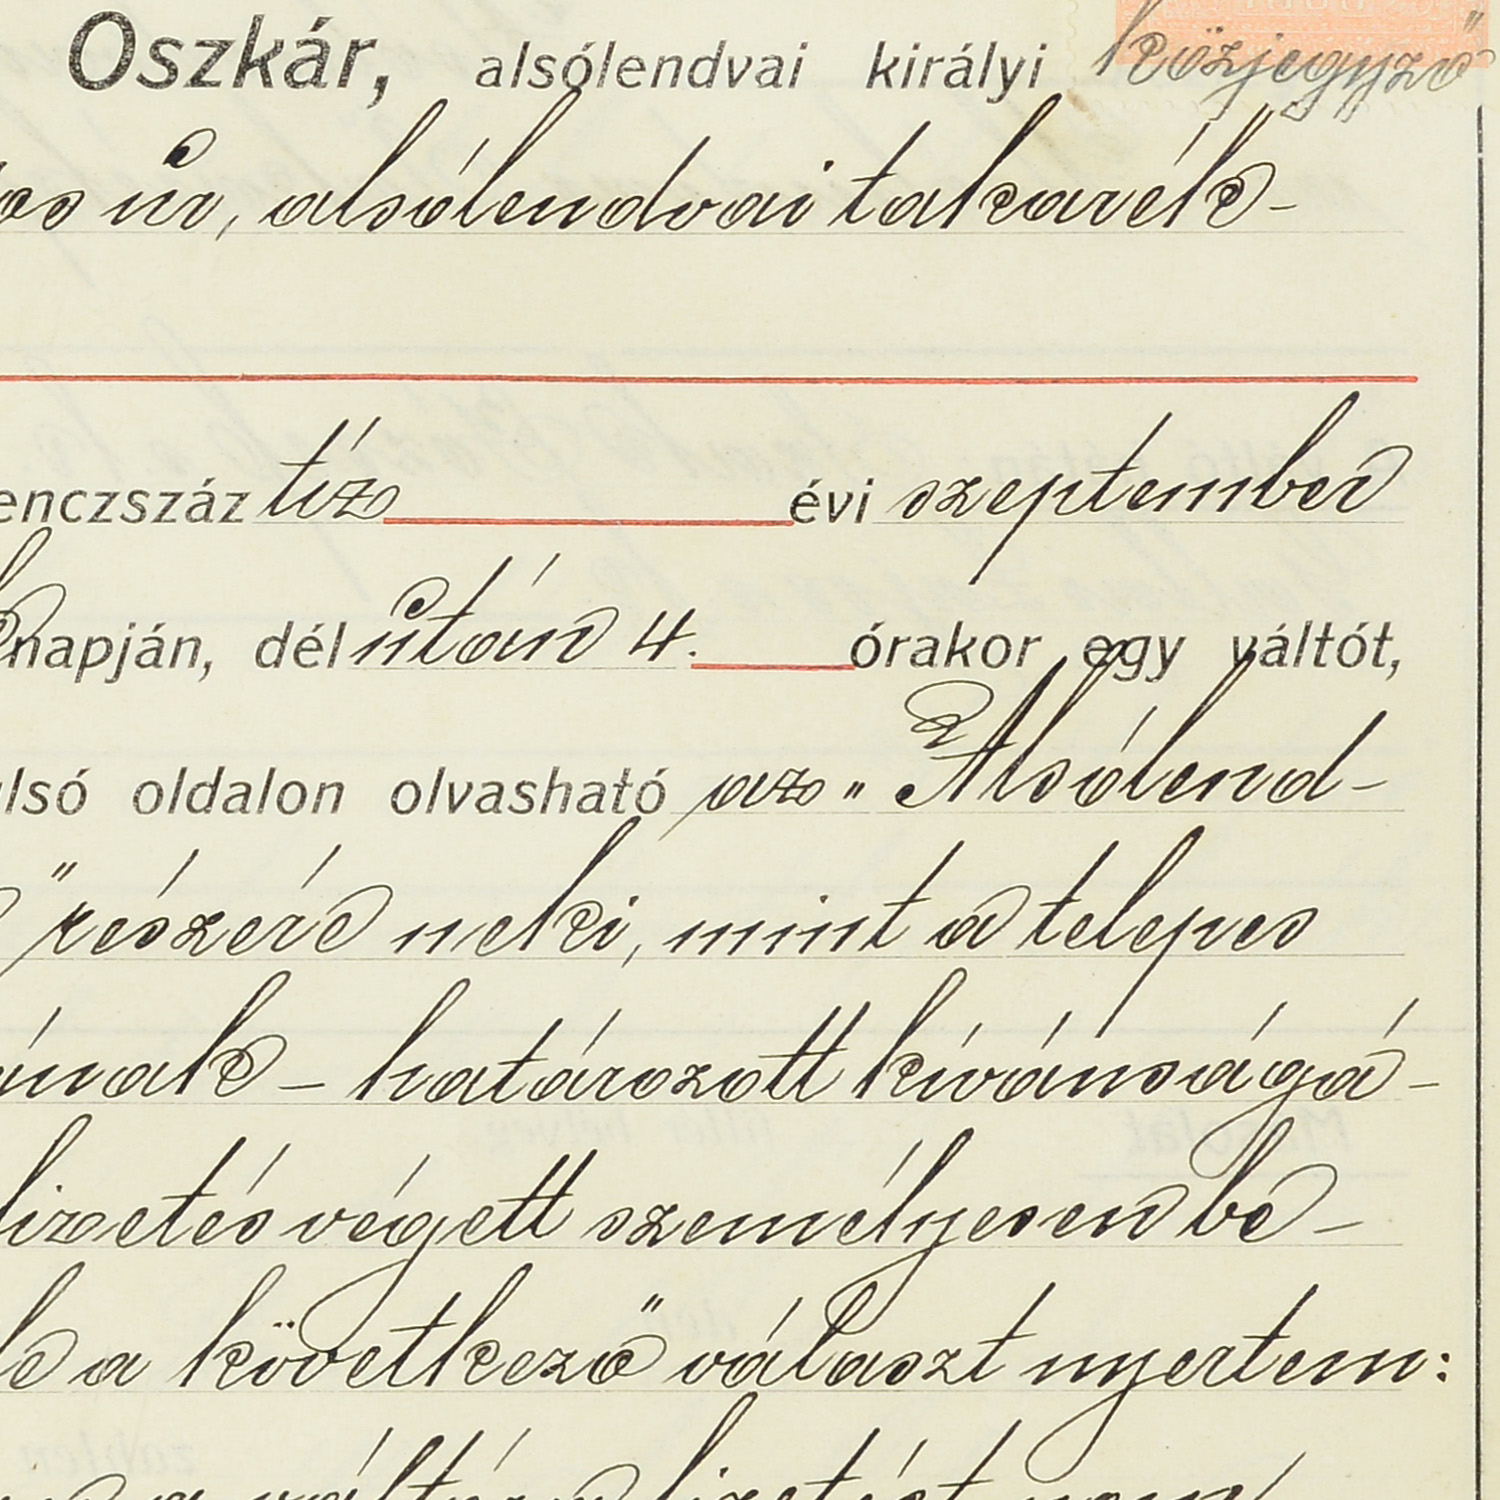 Oszkár, alsólendvai királyi közjegyző
úr, alsólendvai takarék-
enczszáz tíz évi szeptember
napján, délután 4. órakor egy váltót,
alsó oldalon olvasható az „Alsólend-
" részére neki, mint a telepes
ának – határozott kívánságá-
fizetés végett személyesen be-
a következő választ nyertem:
a váltó fizetést nem